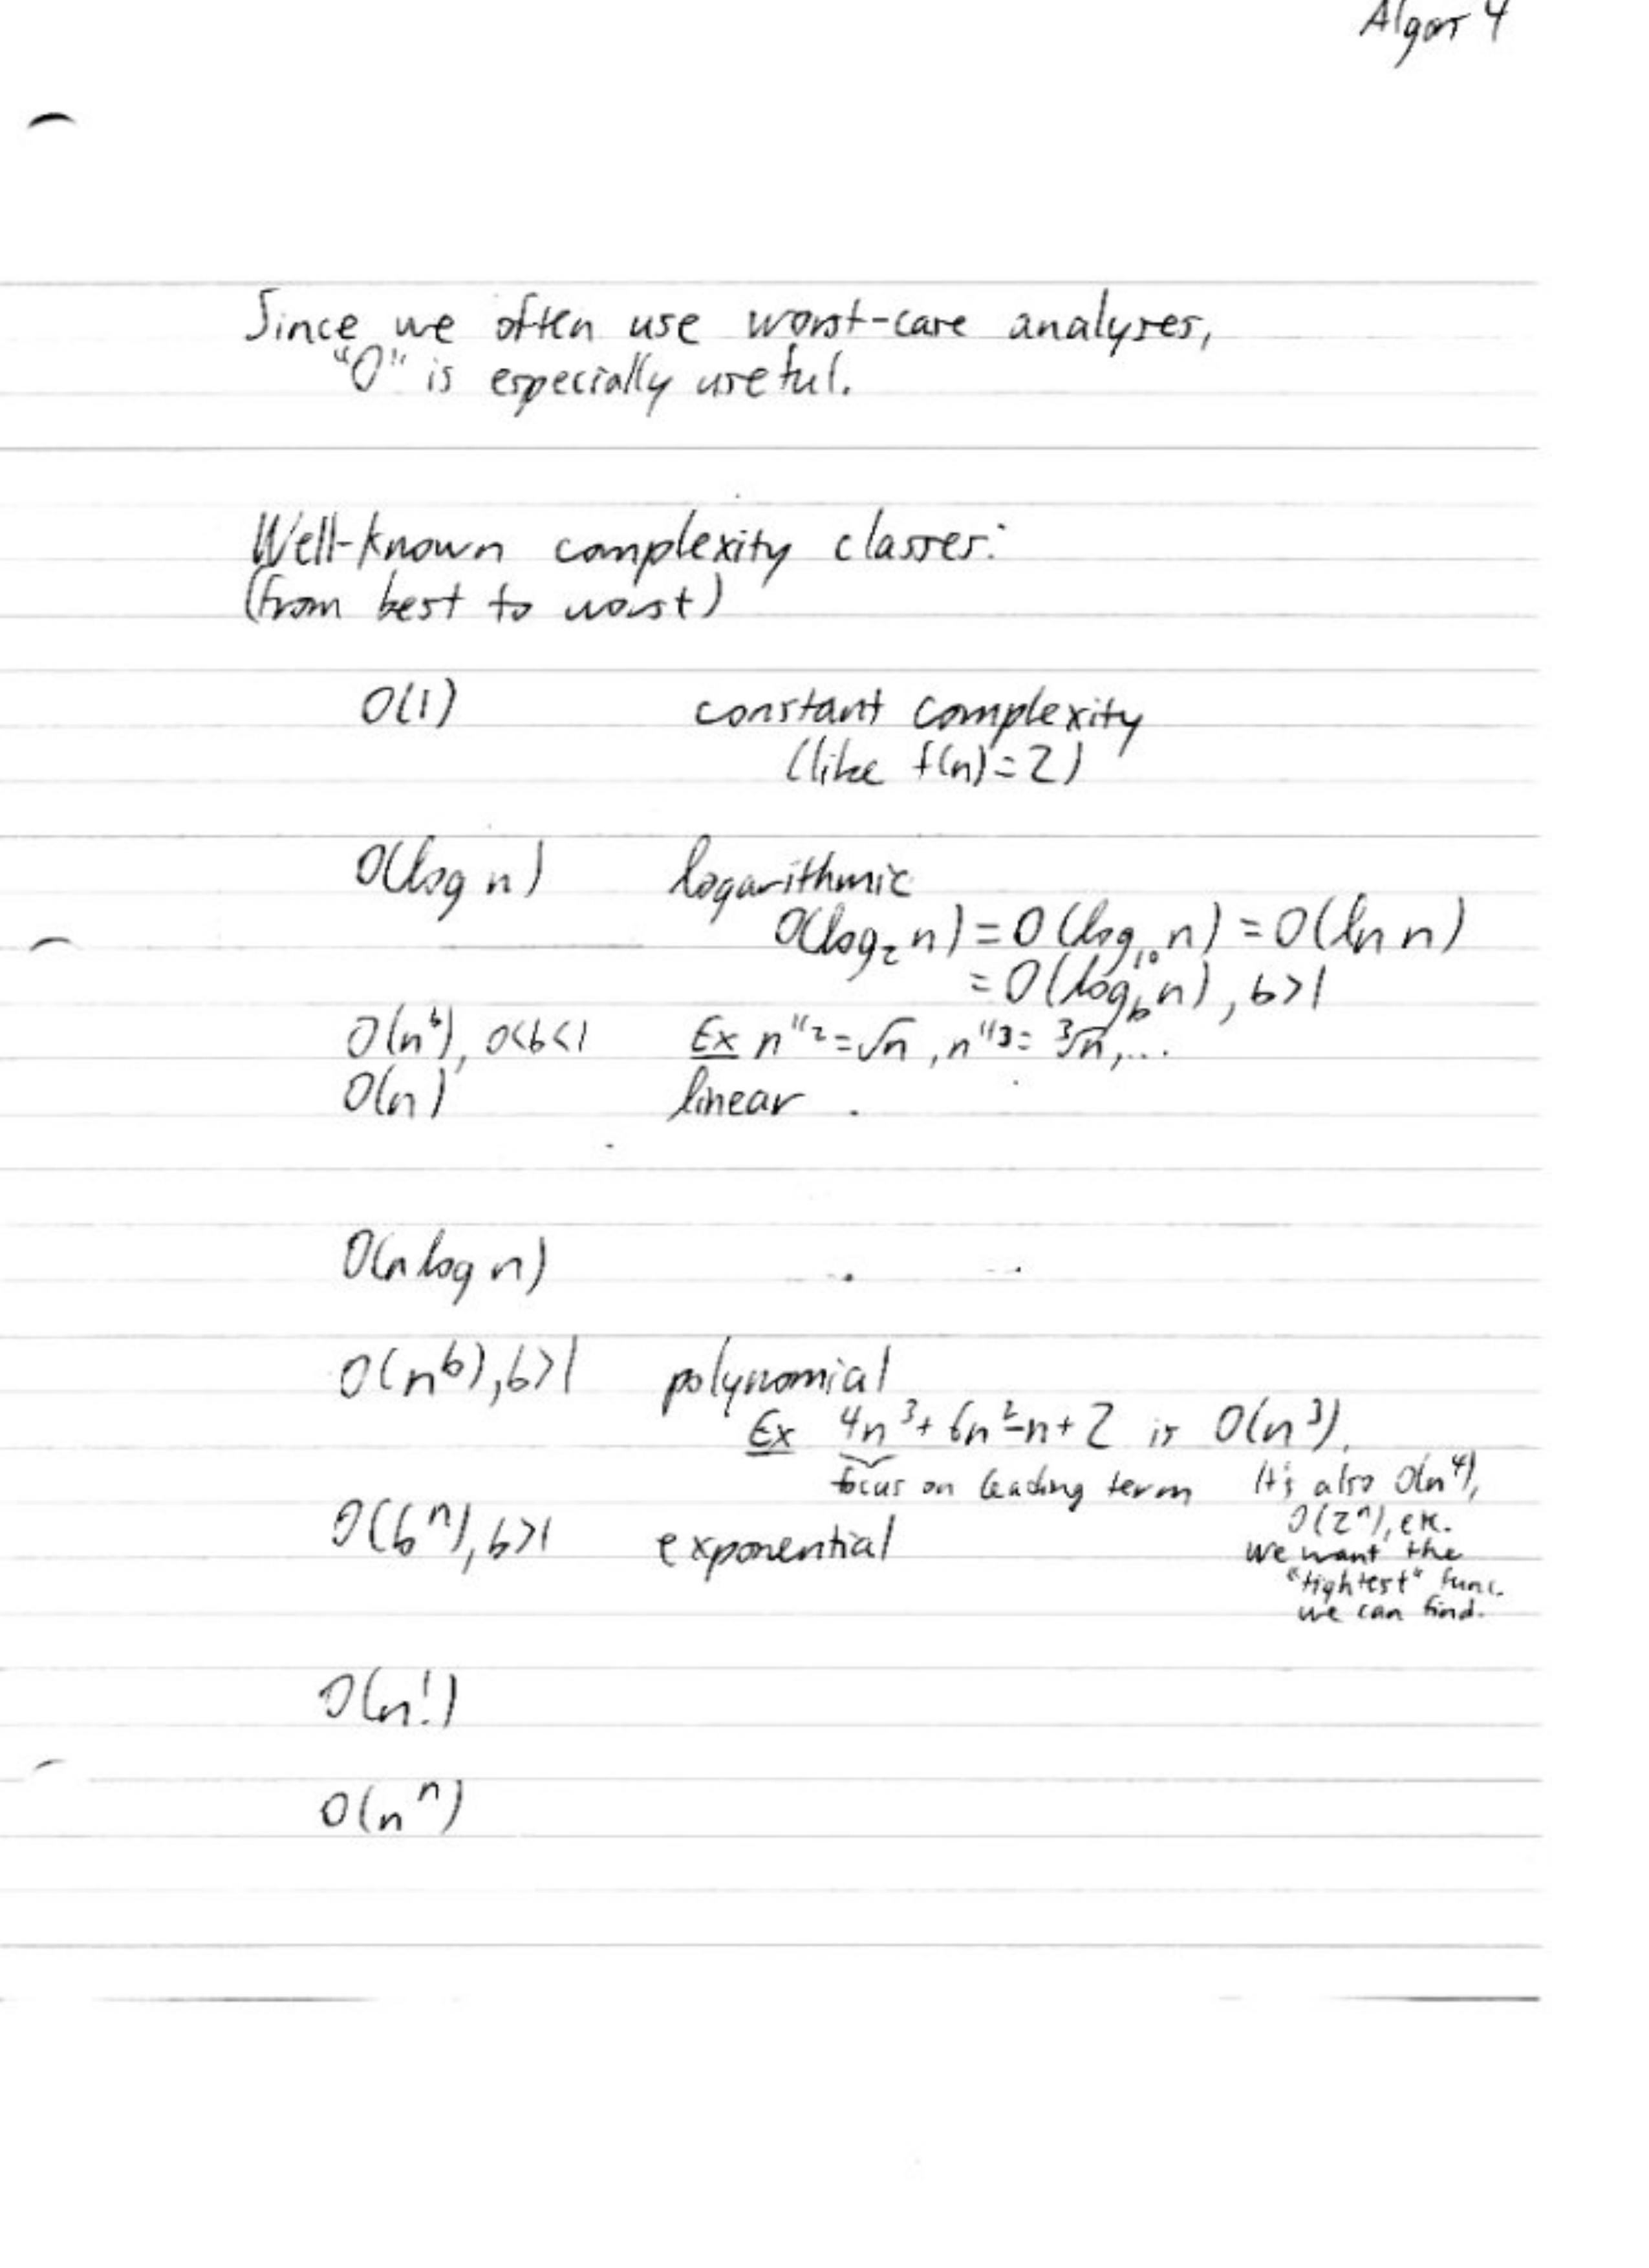 Algor 4
Since we often use worst-case analyses,
"O" is especially useful.
Well-known complexity classes:
(from best to worst)
O(1) constant complexity
(like f(n)=2)
O(log n) logarithmic
O(log₂ n) = O(log₁₀ n) = O(ln n)
= O(log_b n), b>1
O(n^b), 0<b<1 Ex n^1/2 = √n, n^1/3 = ∛n, ...
O(n) linear
O(n log n)
O(n^b), b>1 polynomial
Ex 4n³+6n²-n+2 is O(n³).
focus on leading term It's also O(n⁴),
O(2^n), etc.
O(b^n), b>1 exponential We want the
"tightest" func.
we can find.
O(n!)
O(n^n)